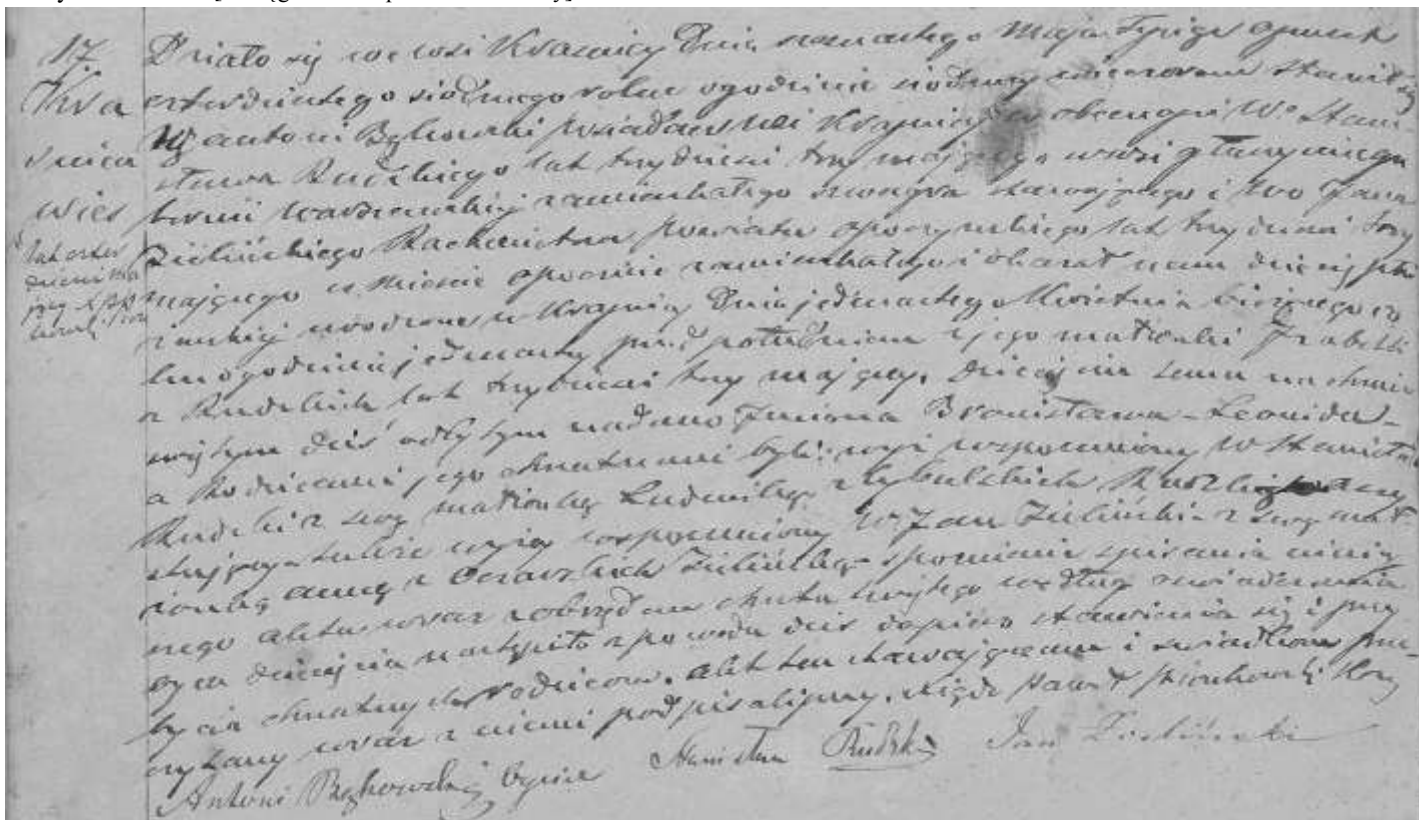 17.
Kra
śnica
wieś
lat czter
dzieści ma
jący
Działo się we wsi Kraśnicy Dnia Maja Tysiąc ośmset
czterdziestego siódmego roku o godzinie siódmej wieczorem Stawił się
W Antoni Bąkowski posiadacz wsi Kraśnicy w obecności Wo Stani-
sława Rudzkiego lat trzydzieści trzy mającego we wsi
zamieszkałego szwagra stawającego i Wo Jana
Zielińskiego Powiatu Opoczyńskiego lat trzydzieści trzy
mającego w mieście Opocznie zamieszkałego i okazał nam dziecię płci
żeńskiej urodzone w Kraśnicy Dnia jedenastego Kwietnia bieżącego ro
ku o godzinie jedenastej przed południem z jego małżonki Izabelli
z Rudzkich lat trzydzieści trzy mającej. Dziecięciu temu na chrzcie
świętym dziś odbytym nadano Imiona Bronisława-Leonida-
a Rodzicami jego chrzestnemi byli: wyż wspomniony W Stanisław
Rudzki z swą małżonką Ludwiką z Rudzką
wyżej wspomniony W Jan Zieliński z swą mał-
żonką Anną z Zielińską opóźnienie spisania niniej
szego aktu wraz z obrzędem chrztu świętego według
dziecięcia nastąpiło z powodu dziś dopiero stawienia się i przy
bycia chrzestnych rodziców. Akt ten stawającemu i świadkom prze-
czytany wraz z niemi podpisaliśmy. Ksiądz
Antoni Bąkowski Ojciec Stanisław Rudzki Jan Zieliński